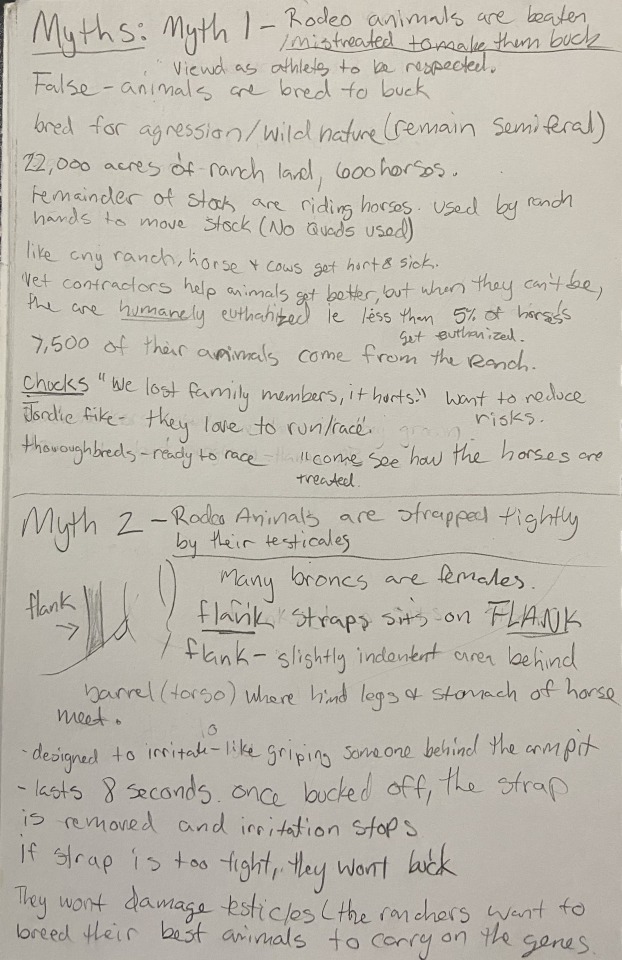 Myths: Myth 1 - Rodeo animals are beaten
/mistreated to make them buck
viewd as athletes to be respected.
False - animals are bred to buck
bred for agression/wild nature (remain semiferal)
22,000 acres of ranch land, 600 horses.
remainder of stock are riding horses. used by ranch
hands to move stock (No Quads used)
like any ranch, horse & cows get hurt & sick.
Vet contractors help animals get better, but when they can't be,
the are humanely euthanized ie less than 5% of horses
get euthanized.
7,500 of their animals come from the Ranch.
Chucks "We lost family members, it hurts." want to reduce
risks.
Jordie fike - they love to run/race.
thoroughbreds - ready to race - "come see how the horses are
treated.
Myth 2 - Rodeo Animals are strapped tightly
by their testicales
many broncs are females.
flank
flank straps sits on FLANK
flank - slightly indentent area behind
barrel (torso) where hind legs & stomach of horse
meet.
- designed to irritate - like griping someone behind the armpit
- lasts 8 seconds. once bucked off, the strap
is removed and irritation stops
if strap is too tight, they wont buck
They wont damage testicles (the ranchers want to
breed their best animals to carry on the genes.